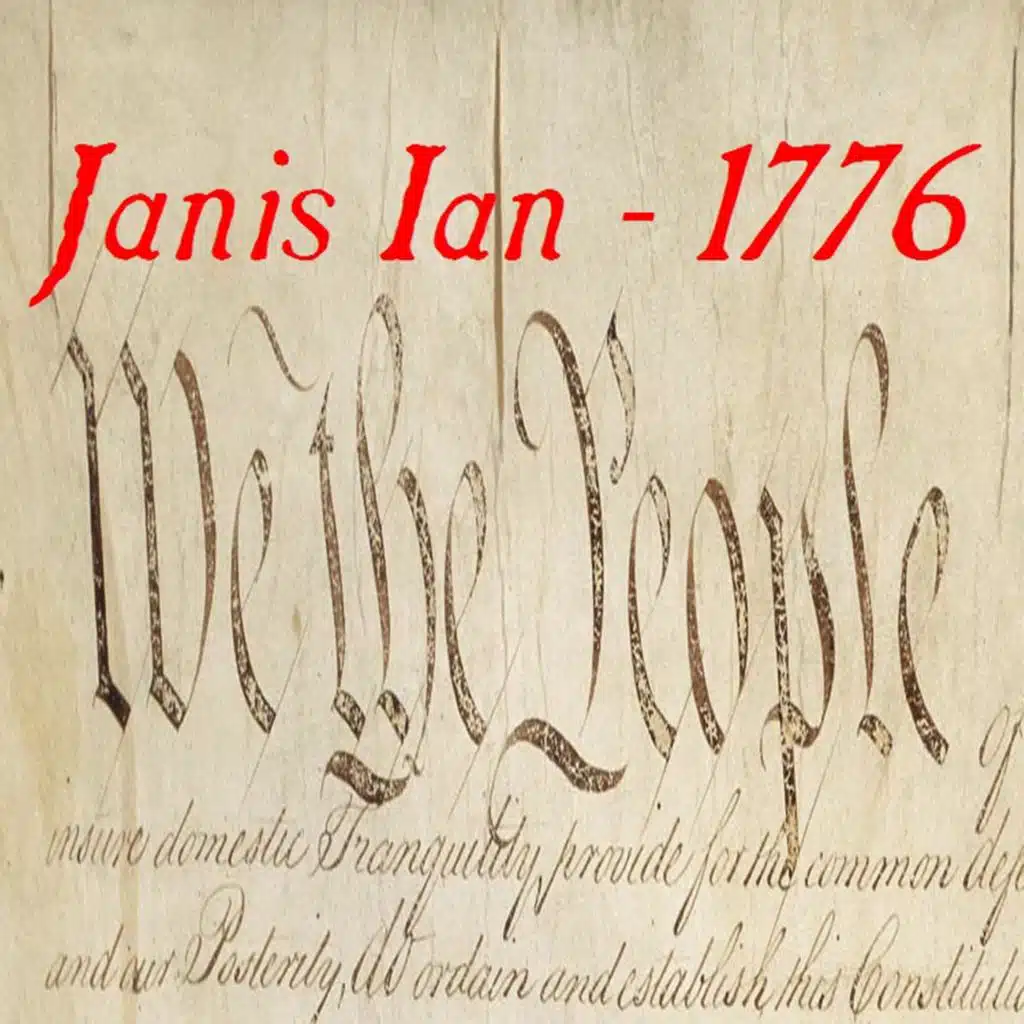 Janis Ian - 1776
We the People
of
insure domestic Tranquility, provide for the common
and our Posterity, do ordain and establish this